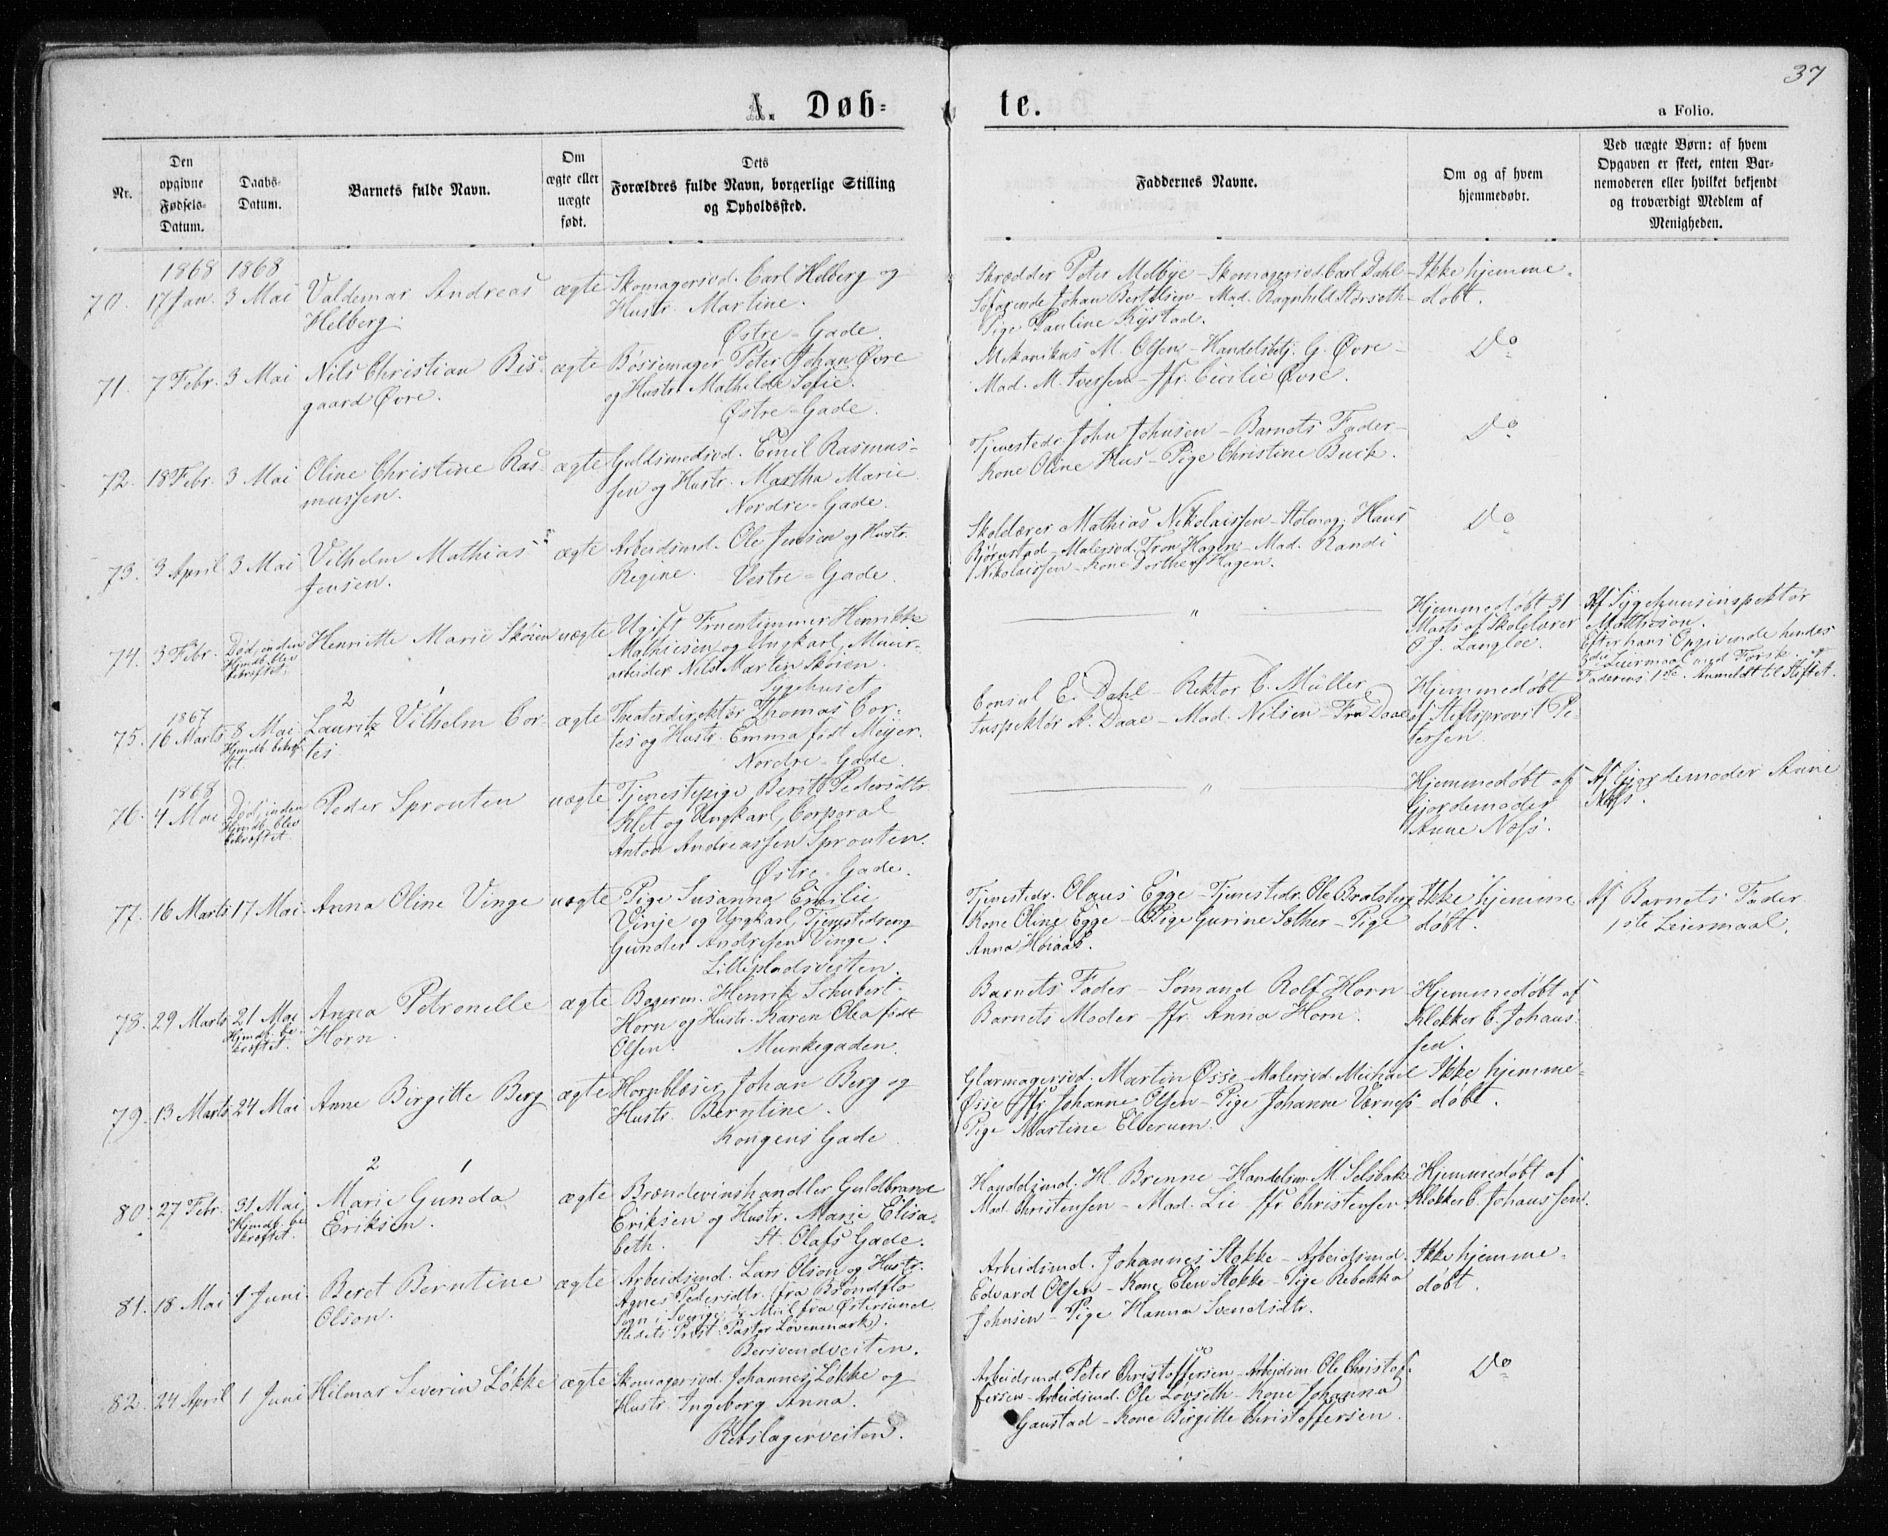 37
A. Døb=
te.
a Folio.
Nr.
Den opgivne Fødsels-Datum.
Daabs-Datum.
Barnets fulde Navn.
Om ægte eller uægte født.
Dets Forældres fulde Navn, borgerlige Stilling og Opholdssted.
Faddernes Navne.
Om og af hvem hjemmedøbt.
Ved uægte Børn: af hvem Opgaven er skeet, enten Barnemoderen eller hvilket bekjendt og troværdigt Medlem af Menigheden.
1868 1868
70. 17 Jan. 3 Mai Valdemar Andreas
Helberg.
ægte
Skomagersvd. Carl Helberg og
Hustr. Martine.
Østre-Gade.
Skrædder Peter Melbye - Skomagersvd Carl Dahl -
Søfarende Johan Bertelsen - Mad. Ragnhild Størseth -
Pige Pauline Rystad.
Ikke hjemme-
døbt.
71. 7 Febr. 3 Mai Nils Christian Bis-
gaard Øvre.
ægte
Bøssemager Peter Johan Øvre
og Hustr. Mathilde Sofie.
Østre-Gade.
Mekanikus M. Olsen - Handelsbtj. G. Øvre -
Mad. M. Iversen - Jfr. Cecilie Øvre.
Do
72. 18 Febr. 3 Mai Oline Christine Ras-
mussen.
ægte
Guldsmedsvd. Emil Rasmus-
sen og Hustr. Martha Marie
Nordre-Gade.
Tjenestedr. John Johnsen - Barnets Fader -
Kone Oline Hus - Pige Christine Buck.
Do
73. 3 April 3 Mai Vilhelm Mathias
Jensen.
ægte
Arbeidsmd. Ole Jensen og Hustr.
Regine. Vestre-Gade.
Skolelærer Mathias Nikolaissen - Stolmag. Hans
Bjørnstad - Malersvd. Tron Hagen - Mad. Randi
Nikolaissen - Kone Dorthea Hagen.
Do
74. 3 Febr. Død, inden
Hjmdb. blev
bekræftet.
Henriette Marie Skøien
uægte
Ugift Fruentimmer Henrikke
Mathiesen og Ungkarl, Muur-
arbeider Nils Martin Skøien.
Sygehuset
"
Hjemmedøbt 31
Marts af Skolelærer
O J. Langloe.
Af Sygehuusinspektør
Mathison.
Efter hans Opgivende hendes
Leiermaal med Forsk. og
Faderens 1ste. Anmeldt til Stiftet.
1867
75. 16 Marts 8 Mai
Hjmdb. bekræf-
tet.
2 1
Lauritz Vilhelm Cor-
tes
ægte
Theaterdirektør Thomas Cor-
tes og Hustr. Emma født Meyer.
Nordre-Gade.
Consul E. Dahl - Rektor C. Müller
Inspektør A. Daae - Mad. Nilsen - Fru Daae
Hjemmedøbt
af Stiftsprovst Pe-
tersen.
1868
76. 4 Mai Død, inden
Hjmdb. blev
bekræftet.
Peder Sprouten
uægte
Tjenestepige Berit Pedersdtr.
Klet og Ungkarl, Corporal
Anton Andreassen Sprouten.
Østre-Gade.
"
Hjemmedøbt af
Gjordemoder
Anne Næss.
Af Gjordemoder Anne
Næss.
77. 16 Marts 17 Mai Anna Oline Vinge
uægte
Pige Susanna Emilie
Vinje og Ungkarl, Tjenestedreng
Gunder Andresen Vinge.
Lillepladsveiten.
Tjenestedr. Olaus Egge - Tjenestedr. Ole Bratsberg
Kone Oline Egge - Pige Gurine Sother - Pige
Anna Høiaas.
Ikke hjemme
døbt.
Af Barnets Fader
1ste Leiermaal.
78. 29 Marts 21 Mai
Hjmdb. be-
kræftet.
Anna Petronelle
Horn.
ægte
Bagerm. Henrik Schubert
Horn og Hustr. Karen Olea født
Olsen. Munkegaden.
Barnets Fader - Sømand Rolf Horn
Barnets Moder - Jfr. Anna Horn.
Hjemmedøbt af
Klokker C. Johans-
sen.
79. 13 Marts 24 Mai Anne Birgitte Berg
ægte
Hornblæser Johan Berg og
Hustr. Berntine.
Kongens Gade.
Glarmagersvd. Martin Øsse - Malersvd. Michael
Øsse Jfr. Johanne Olsen - Pige Johanne Værness -
Pige Martine Elverum.
Ikke hjemme-
døbt.
80. 27 Febr. 31 Mai
Hjmdb. be-
kræftet.
2 1
Marie Gunda
Eriksen.
ægte
Brændevinshandler Guldbrand
Eriksen og Hustr. Marie Elisa-
beth. St. Olafs Gade.
Handelsmd. H. Brenne - Handelsm. M. Selsbak -
Mad. Christensen - Mad. Lie - Jfr. Christensen
Hjemmedøbt af
Klokker C. Johanssen.
81. 18 Mai 1 Juni Beret Berntine
Olson.
ægte
Arbeidsmd. Lars Olson og Hustr.
Agnes Pedersdtr. (fra Brøndflo
Sogn i Sverige, Miil fra Østersund.
Stedets Præst: Pastor Løvenmark).
Bersvendveiten.
Arbeidsmd. Johannes Stokke - Arbeidsmd.
Edvard Olsen - Kone Elen Stokke - Pige Rebekka
Johnsen - Pige Hanna Svendsdtr.
Ikke hjemme-
døbt.
82. 24 April 1 Juni Hilmar Severin Løkke
ægte
Skomagersvd. Johannes Løkke og
Hustr. Ingeborg Anna.
Rebslagerveiten.
Arbeidsmd Peter Christoffersen - Arbeidsm. Ole Christof-
fersen - Arbeidsmd. Ole Løvseth - Kone Johanna
Gaustad - Kone Birgitte Christoffersen.
Do